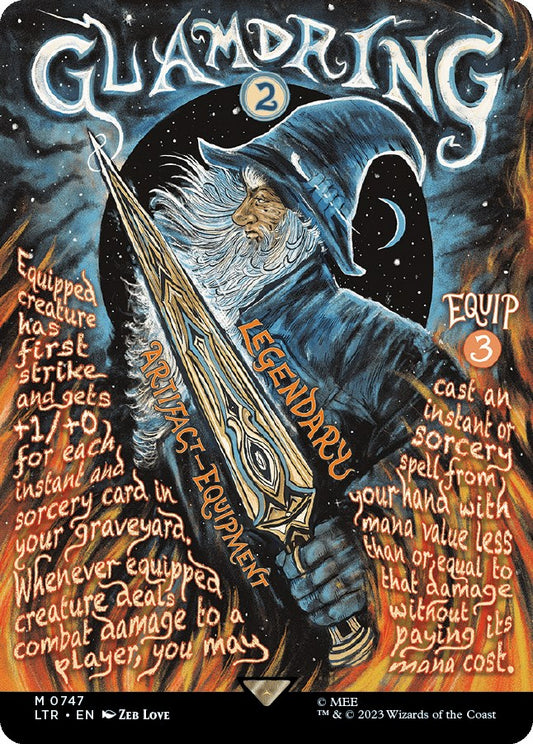 GLAMDRING
2
Equipped
creature
has
first
strike
and gets
+1/+0
for each
instant and
sorcery card in
your graveyard.
Whenever equipped
creature deals
combat damage to a
player, you may
ARTIFACT—EQUIPMENT
LEGENDARY
EQUIP
3
cast an
instant or
sorcery
spell from
your hand with
mana value less
than or equal to
that damage
without
paying its
mana cost.
M 0747
LTR • EN ZEB LOVE
© MEE
™ & © 2023 Wizards of the Coast